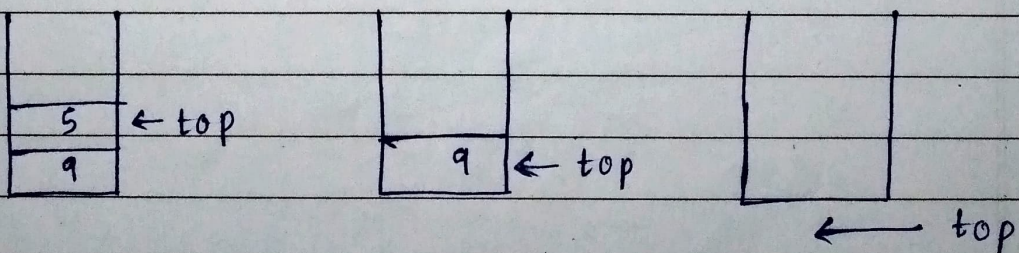 5 ← top
9
9 ← top
← top